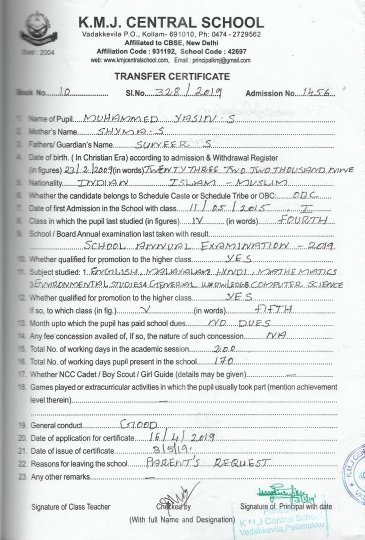 K.M.J. CENTRAL SCHOOL
Vadakkevila P.O., Kollam- 691010, Ph: 0474 - 2729562
Affiliated to CBSE, New Delhi
Affiliation Code : 931192, School Code : 42697
web: www.kmjcentralschool.com, Email : principalkmj@gmail.com
Estd : 2004
TRANSFER CERTIFICATE
Book No. 10 Sl.No. 328/2019 Admission No. 1456
1. Name of Pupil MUHAMMED YASIN. S
2. Mother's Name SHYMA. S
3. Fathers/ Guardian's Name SUNEER. S
4. Date of birth. ( In Christian Era) according to admission & Withdrawal Register
(in figures) 23/2/2009 (in words) TWENTY THREE TWO TWO THOUSAND NINE
5. Nationality INDIAN ISLAM - MUSLIM
6. Whether the candidate belongs to Schedule Caste or Schedule Tribe or OBC: OBC
7. Date of first Admission in the School with class 11/05/2015 I
8. Class in which the pupil last studied (in figures) IV (in words) FOURTH
9. School / Board Annual examination last taken with result
SCHOOL ANNUAL EXAMINATION - 2019
10. Whether qualified for promotion to the higher class YES
11. Subject studied: 1. ENGLISH, MALAYALAM 2. HINDI, MATHEMATICS
3. ENVIRONMENTAL STUDIES 4. GENERAL KNOWLEDGE COMPUTER SCIENCE
12. Whether qualified for promotion to the higher class YES
If so, to which class (in fig.) V (in words) FIFTH
13. Month upto which the pupil has paid school dues NO DUES
14. Any fee concession availed of, If so, the nature of such concession NA
15. Total No. of working days in the academic session 200
16. Total No. of working days pupil present in the school 170
17. Whether NCC Cadet / Boy Scout / Girl Guide (details may be given) —
18. Games played or extracurricular activities in which the pupil usually took part (mention achievement
level therein) —
19. General conduct GOOD
20. Date of application for certificate 15/4/2019
21. Date of issue of certificate 3/5/19
22. Reasons for leaving the school PARENT'S REQUEST
23. Any other remarks —
Signature of Class Teacher Checked by Signature of Principal with date
(With full Name and Designation)
K M J Central School
Vadakkevila, Pallimukku